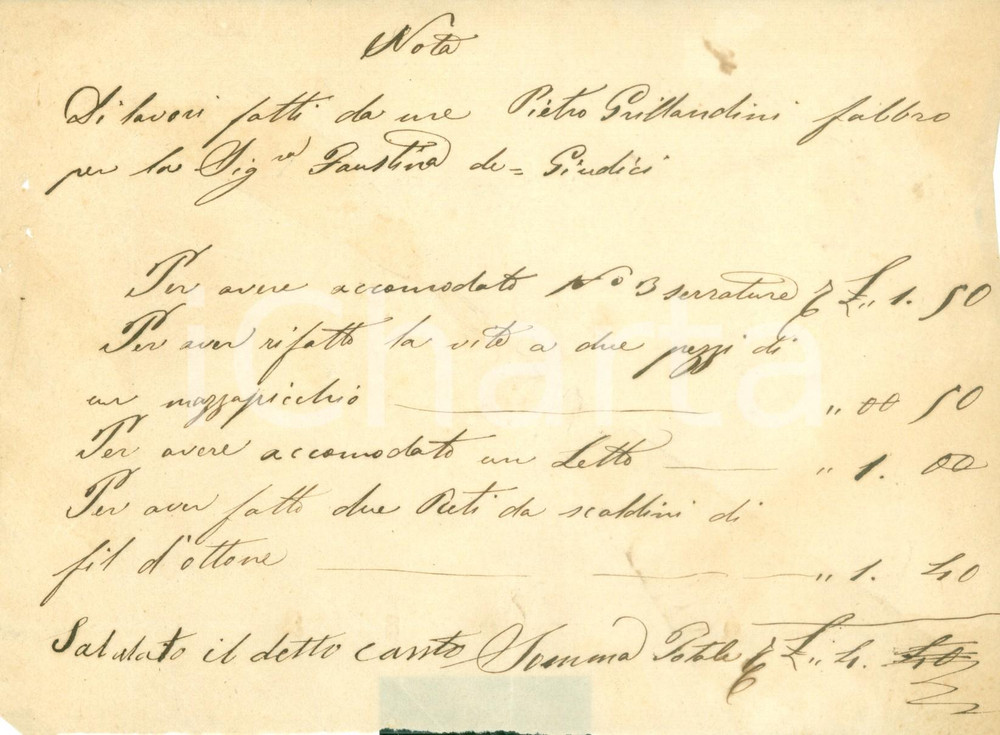 Nota
Di lavori fatti da me Pietro Grillandini fabbro
per la Sig.ra Faustina de= Giudici
Per avere accomodato No 3 serrature £ „ 1. 50
Per aver rifatto la vite a due pezzi di
un mazzapicchio „ 00 50
Per avere accomodato un Letto „ 1. 00
Per aver fatto due Reti da scaldini di
fil d'ottone „ 1. 40
Saldato il detto conto Somma Totale £ „ 4. 40
iCharta